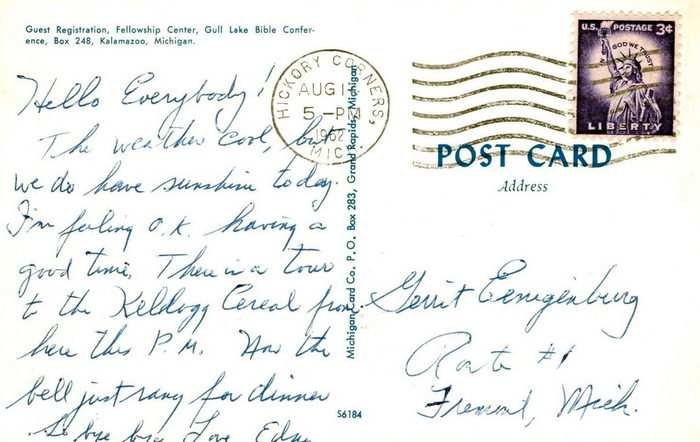 Guest Registration, Fellowship Center, Gull Lake Bible Confer-
ence, Box 248, Kalamazoo, Michigan.
Hello Everybody!
The weather cool, but
we do have sunshine today.
I'm feeling O.K. having a
good time. There is a tour
to the Kellogg Cereal from
here this P.M. Now the
bell just rang for dinner
So bye bye Love Edna
Michigan Card Co. P.O. Box 283, Grand Rapids, Michigan
S6184
HICKORY CORNERS,
AUG
5-PM
1962
MICH
U.S. POSTAGE 3¢
IN GOD WE TRUST
LIBERTY
POST CARD
Address
Gerrit
Route #1
Fremont, Mich.